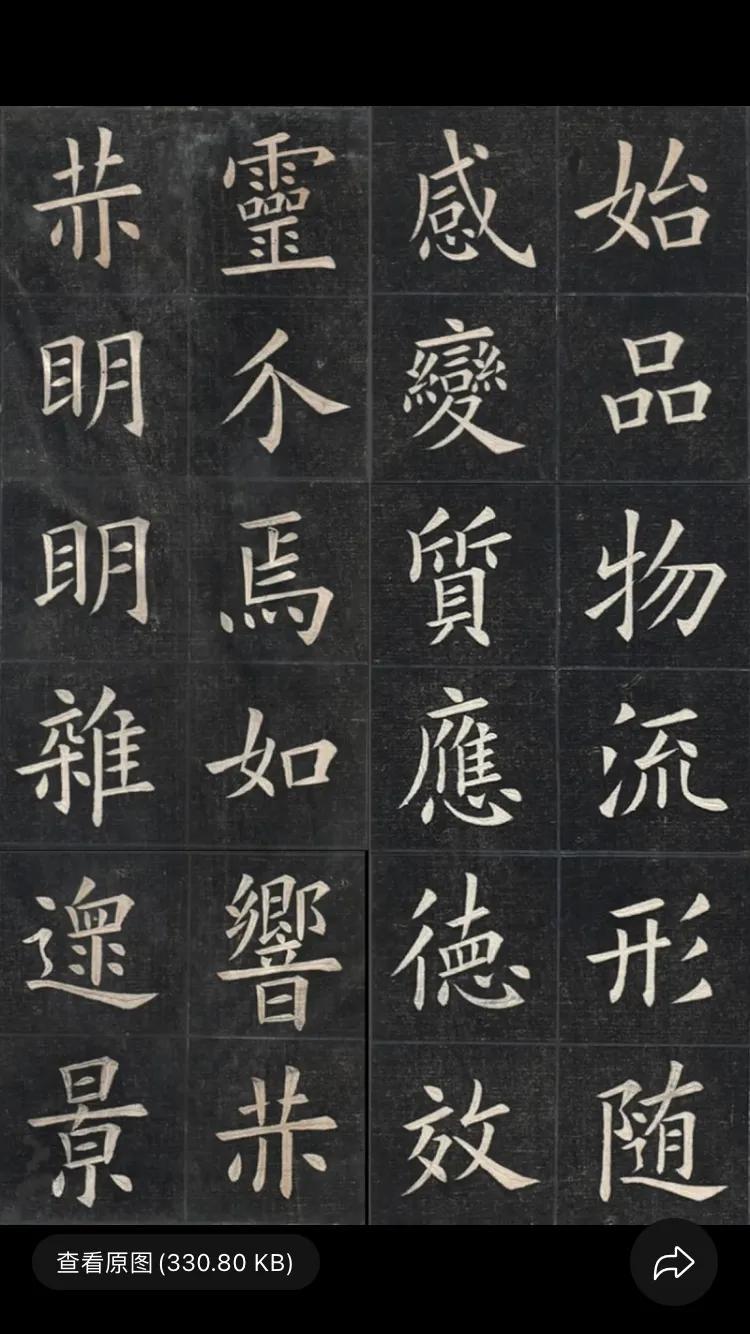 始品物流形随
感變質應德效
靈介焉如響赫
赫眀眀雜遝景
查看原图 (330.80 KB)